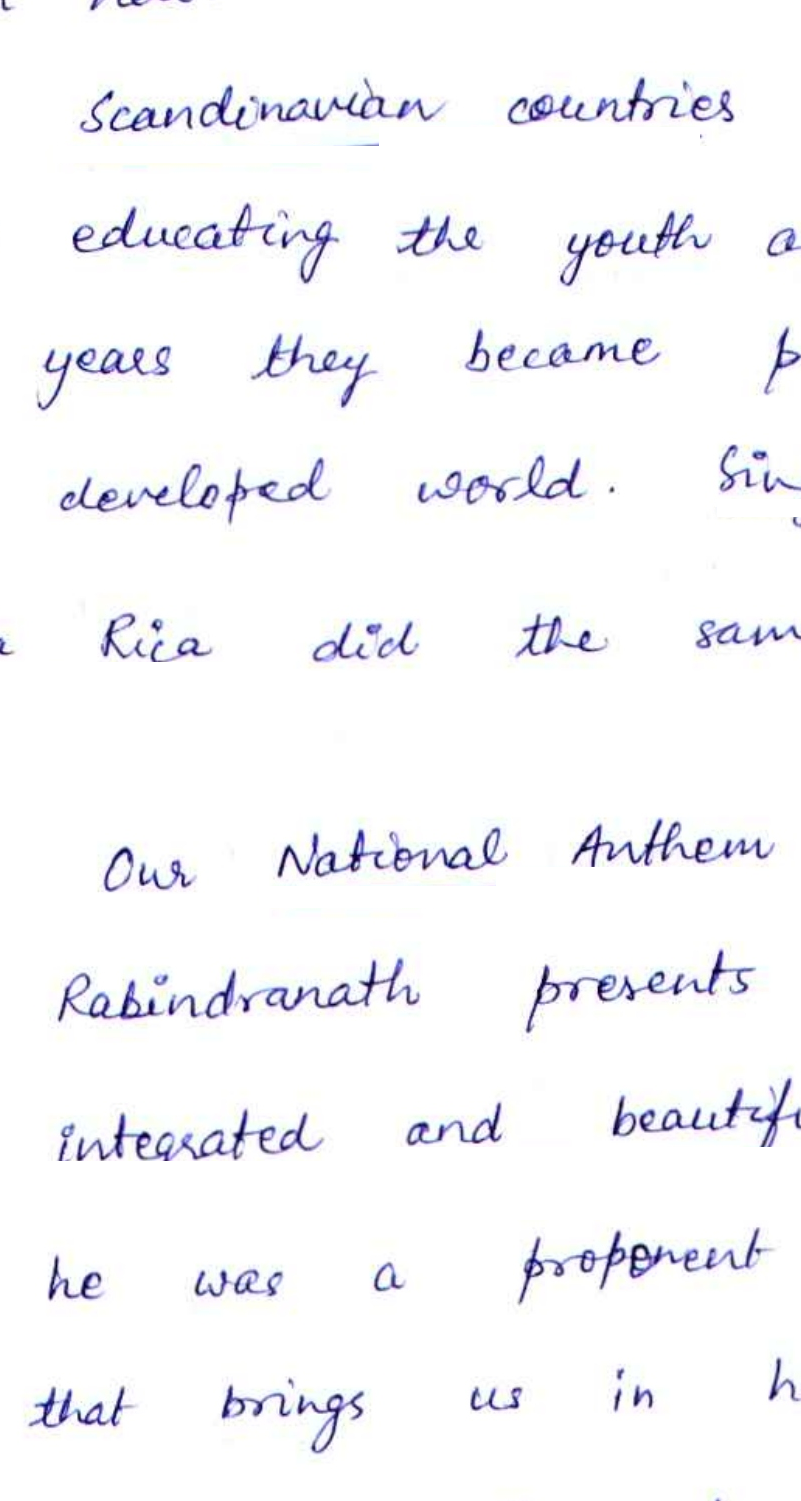 Scandinavian countries
educating the youth
years they became
developed world.
Rica did the
Our National Anthem
Rabindranath presents
integrated and
he was a proponent
that brings us in